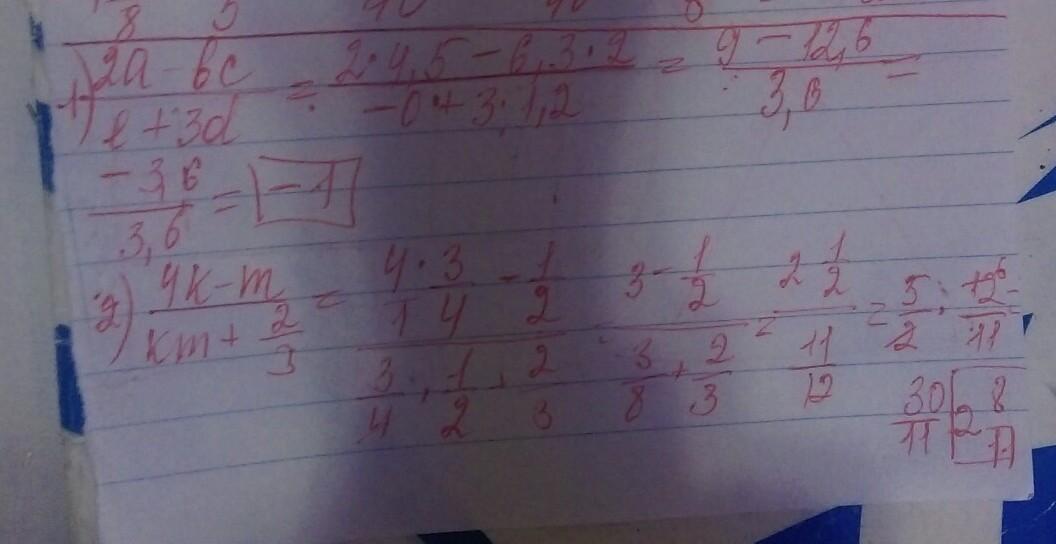 8 5 40 40 8
1) (2a - bc)/(l + 3d) = (2·4,5 - 6,3·2)/(-0 + 3·1,2) = (9 - 12,6)/(3,6) =
(-3,6)/(3,6) = -1
2) (4k - m)/(km + 2/3) = (4/1 · 3/4 - 1/2)/(3/4 · 1/2 + 2/3) = (3 - 1/2)/(3/8 + 2/3) = (2 1/2)/(11/12) = 5/2 · 12/11 =
30/11 2 8/11